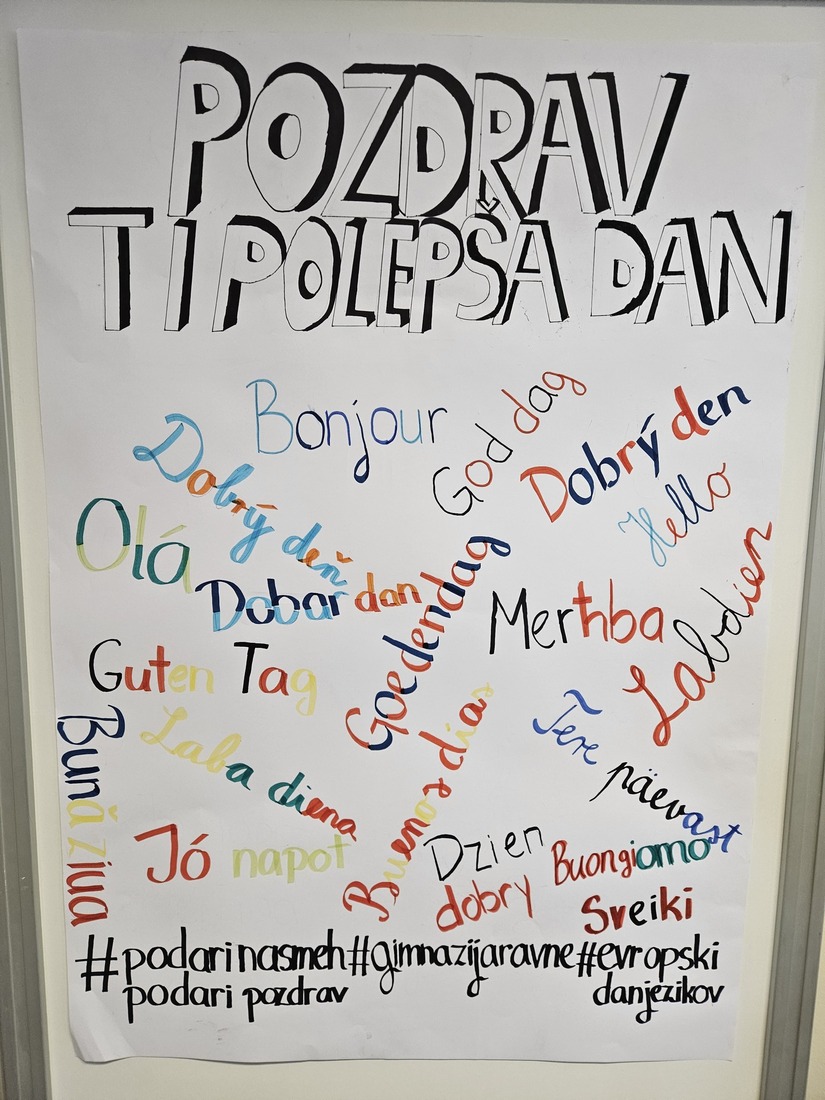 POZDRAV
TI POLEPŠA DAN
Bonjour
God dag
Dobrý den
Dobrý deň
Hello
Olá
Dobar dan
Goedendag
Merħba
Labdien
Guten Tag
Bună ziua
Laba diena
Buenos días
Tere päevast
Jó napot
Dzien dobry
Buongiorno
Sveiki
#podarinasmeh#gimnazijaravne#evropski
podari pozdrav danjezikov